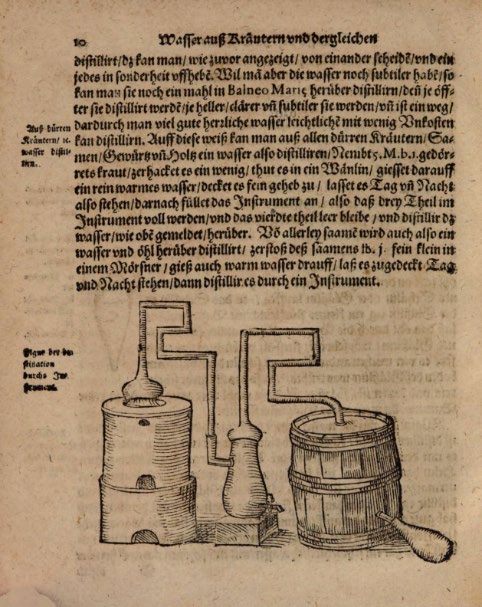 10 Wasser auß Kräutern vnd dergleichen
distillirt/dz kan man/wie zuvor angezeigt/von einander scheidē/vnd ein
jedes in sonderheit vffhebē. Wil mā aber die wasser noch subtiler habē/so
kan man sie noch ein mahl in Balneo Marię herüber distillirn/deñ je öff-
ter sie distillirt werdē/je heller/clärer vñ subtiler sie werden/vñ ist ein weg/
dardurch man viel gute herrliche wasser leichtlichē mit wenig Vnkosten
kan distillirn. Auff diese weiß kan man auß allen dürren Kräutern/Sa-
men/Gewürtz vñ Holtz ein wasser also distilliren/Nembt 5. M. b. 1. gedör-
rets kraut/zerhacket es ein wenig/thut es in ein Wänlin/giesset darauff
ein rein warmes wasser/decket es fein geheb zu/lasset es Tag vñ Nacht
also stehen/darnach füllet das Instrument an/also daß drey Theil im
Instrument voll werden/vnd das vierdte theil leer bleibe/vnd distillir dz
wasser/wie obē gemeldet/herüber. Vō allerley saamē wird auch also ein
wasser vnd öhl herüber distillirt/zerstoß deß saamens lb. j. fein klein in
einem Mörsner/gieß auch warm wasser drauff/laß es zugedeckt Tag
vnd Nacht stehen/dann distillir es durch ein Instrument.
Auß dürren
Kräutern/ ꝛc.
wasser distil-
liren.
Figur der di-
stillation
durchs In-
strument.